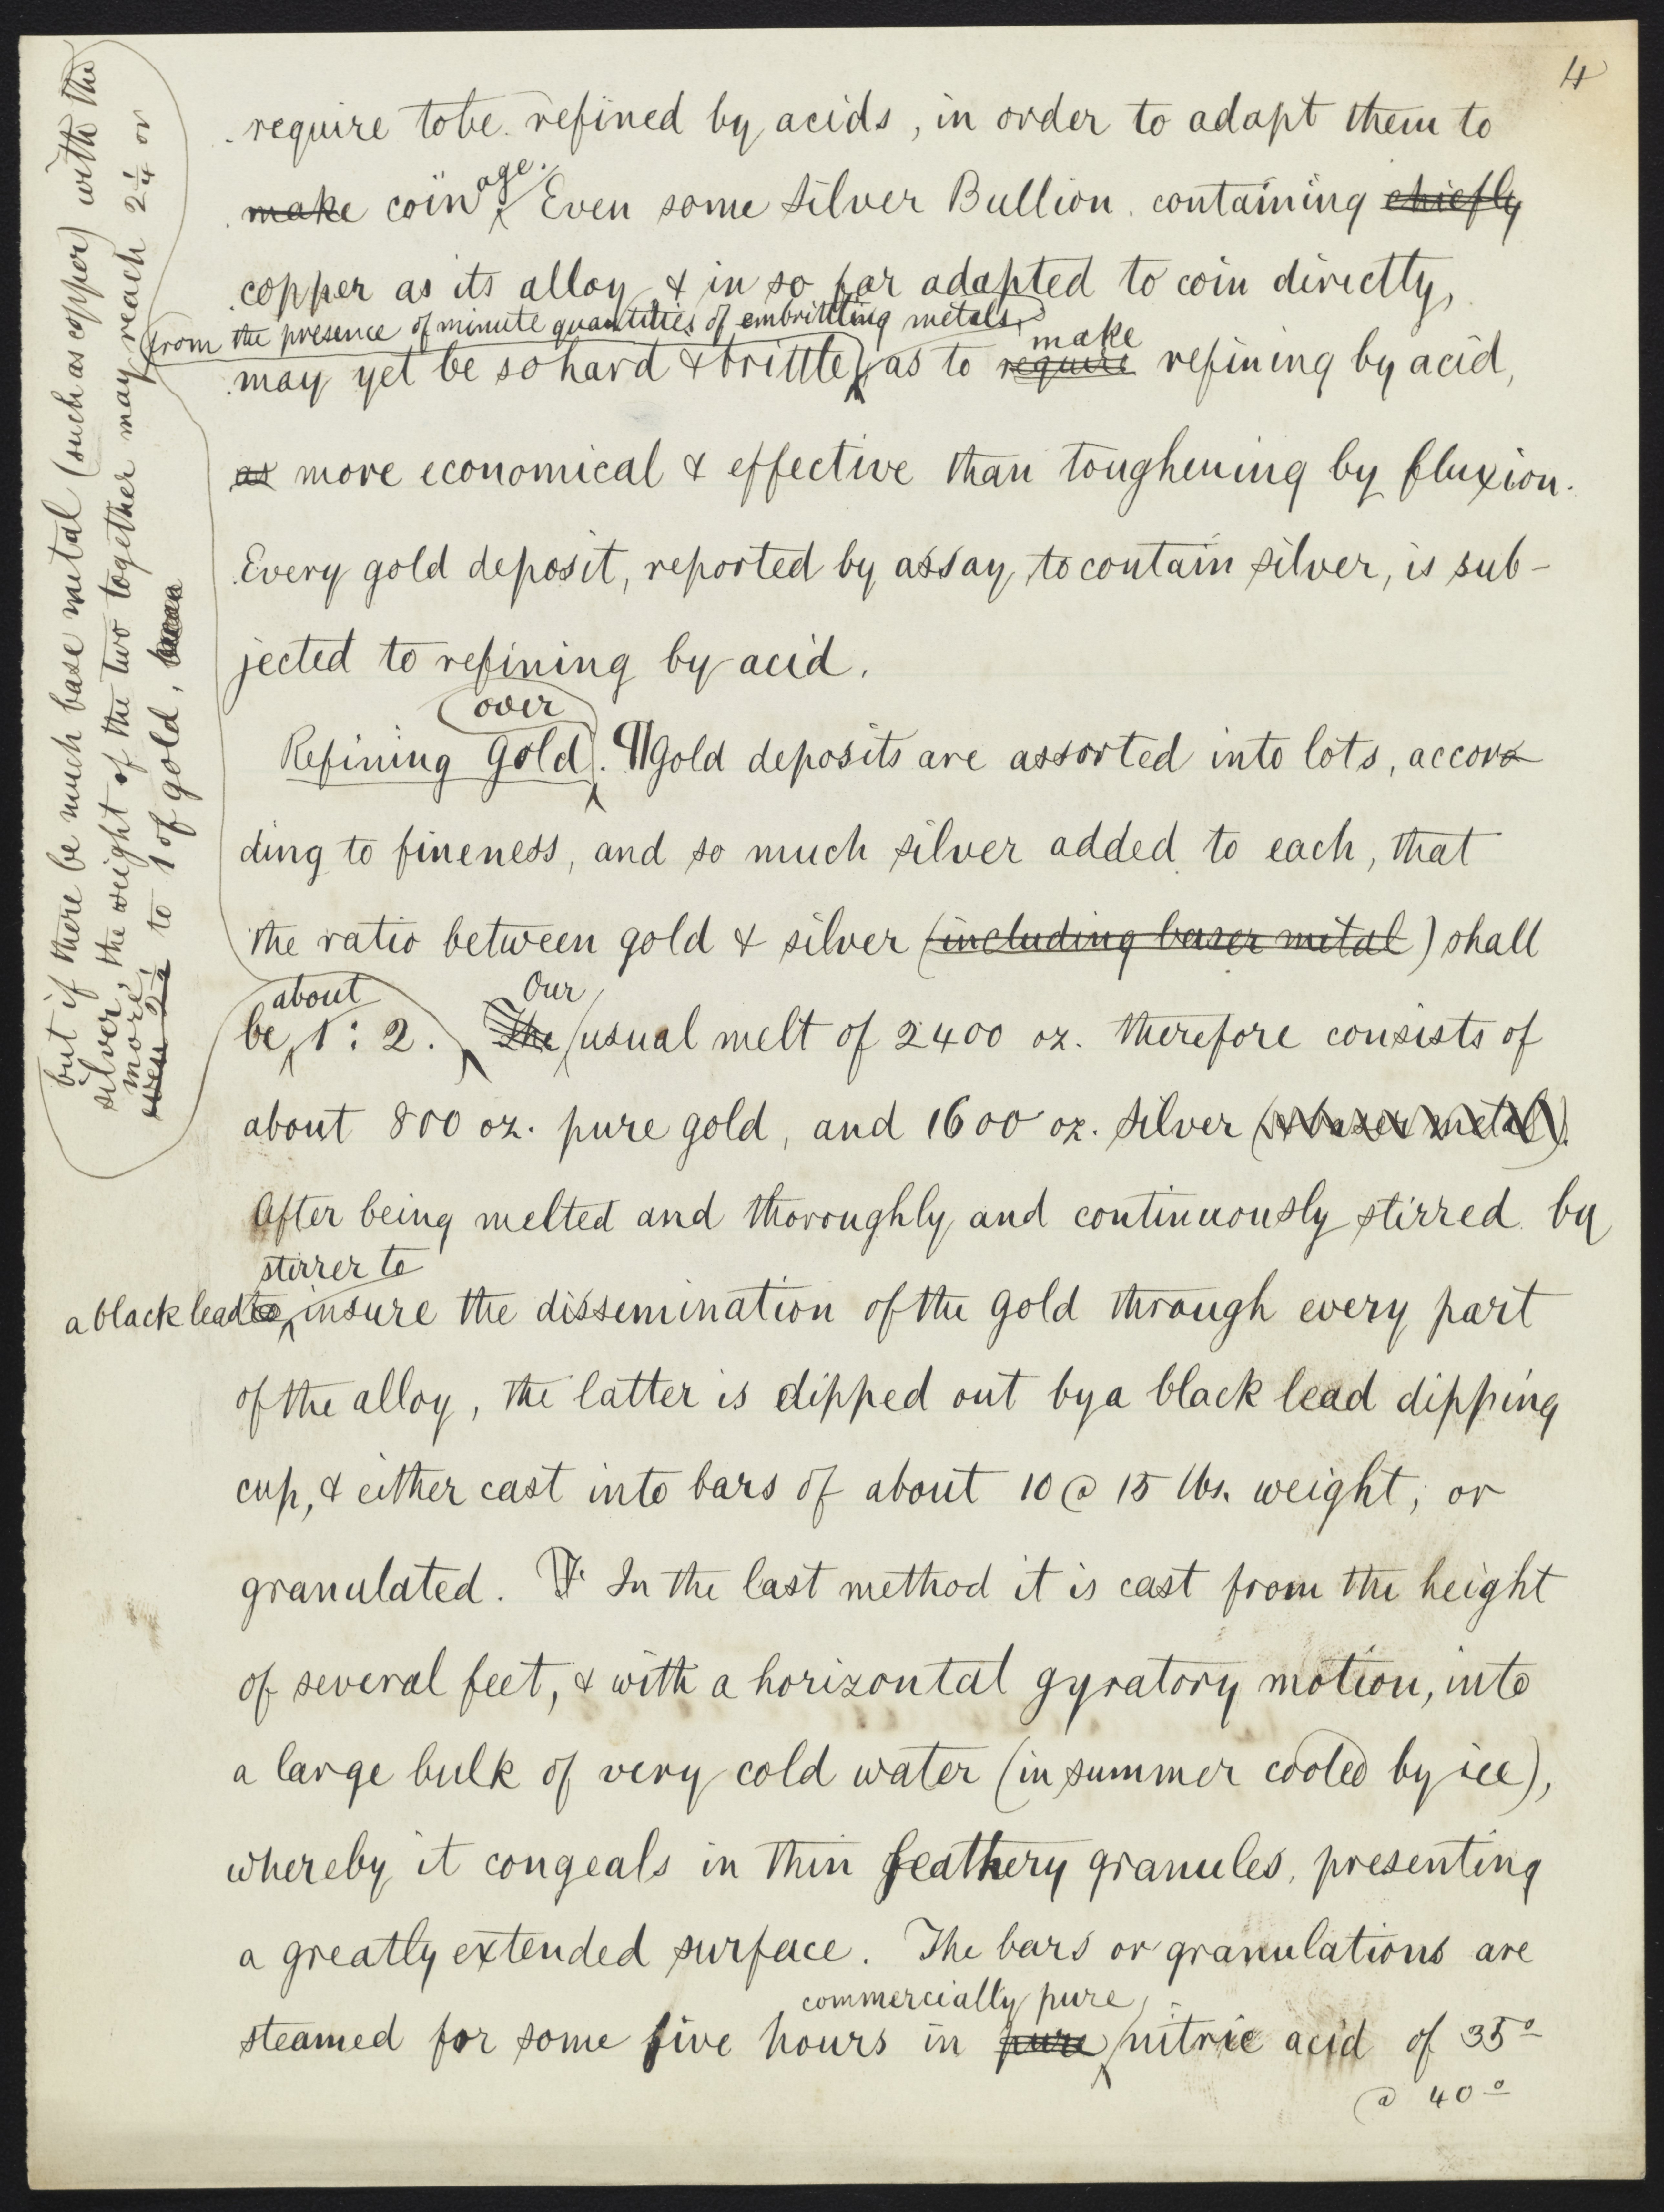 4
require to be refined by acids, in order to adapt them to
make coinage. Even some silver Bullion containing chiefly
copper as its alloy & in so far adapted to coin directly,
from the presence of minute quantities of embrittling metals,
make
may yet be so hard & brittle, as to require refining by acid,
as more economical & effective than toughening by fluxion.
Every gold deposit, reported by assay, to contain silver, is sub-
jected to refining by acid.
over
Refining Gold. ¶ Gold deposits are assorted into lots, accor-
ding to fineness, and so much silver added to each, that
the ratio between gold & silver (including baser metal) shall
about Our
be 1 : 2. The usual melt of 2400 oz. therefore consists of
about 800 oz. pure gold, and 1600 oz. silver (& baser metal).
After being melted and thoroughly and continuously stirred by
stirrer to
a black lead to insure the dissemination of the gold through every part
of the alloy, the latter is dipped out by a black lead dipping
cup, & either cast into bars of about 10 @ 15 lbs. weight, or
granulated. ¶ In the last method it is cast from the height
of several feet, & with a horizontal gyratory motion, into
a large bulk of very cold water (in summer cooled by ice),
whereby it congeals in thin feathery granules, presenting
a greatly extended surface. The bars or granulations are
commercially pure
steamed for some five hours in pure nitric acid of 35°
@ 40°
but if there be much base metal (such as copper) with the
silver, the weight of the two together may reach 2¼ or
more
even 2½ to 1 of gold,